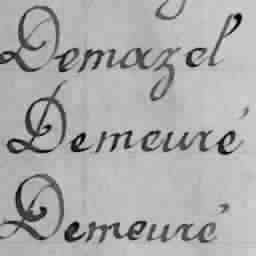 Demazel
Demeuré
Demeuré